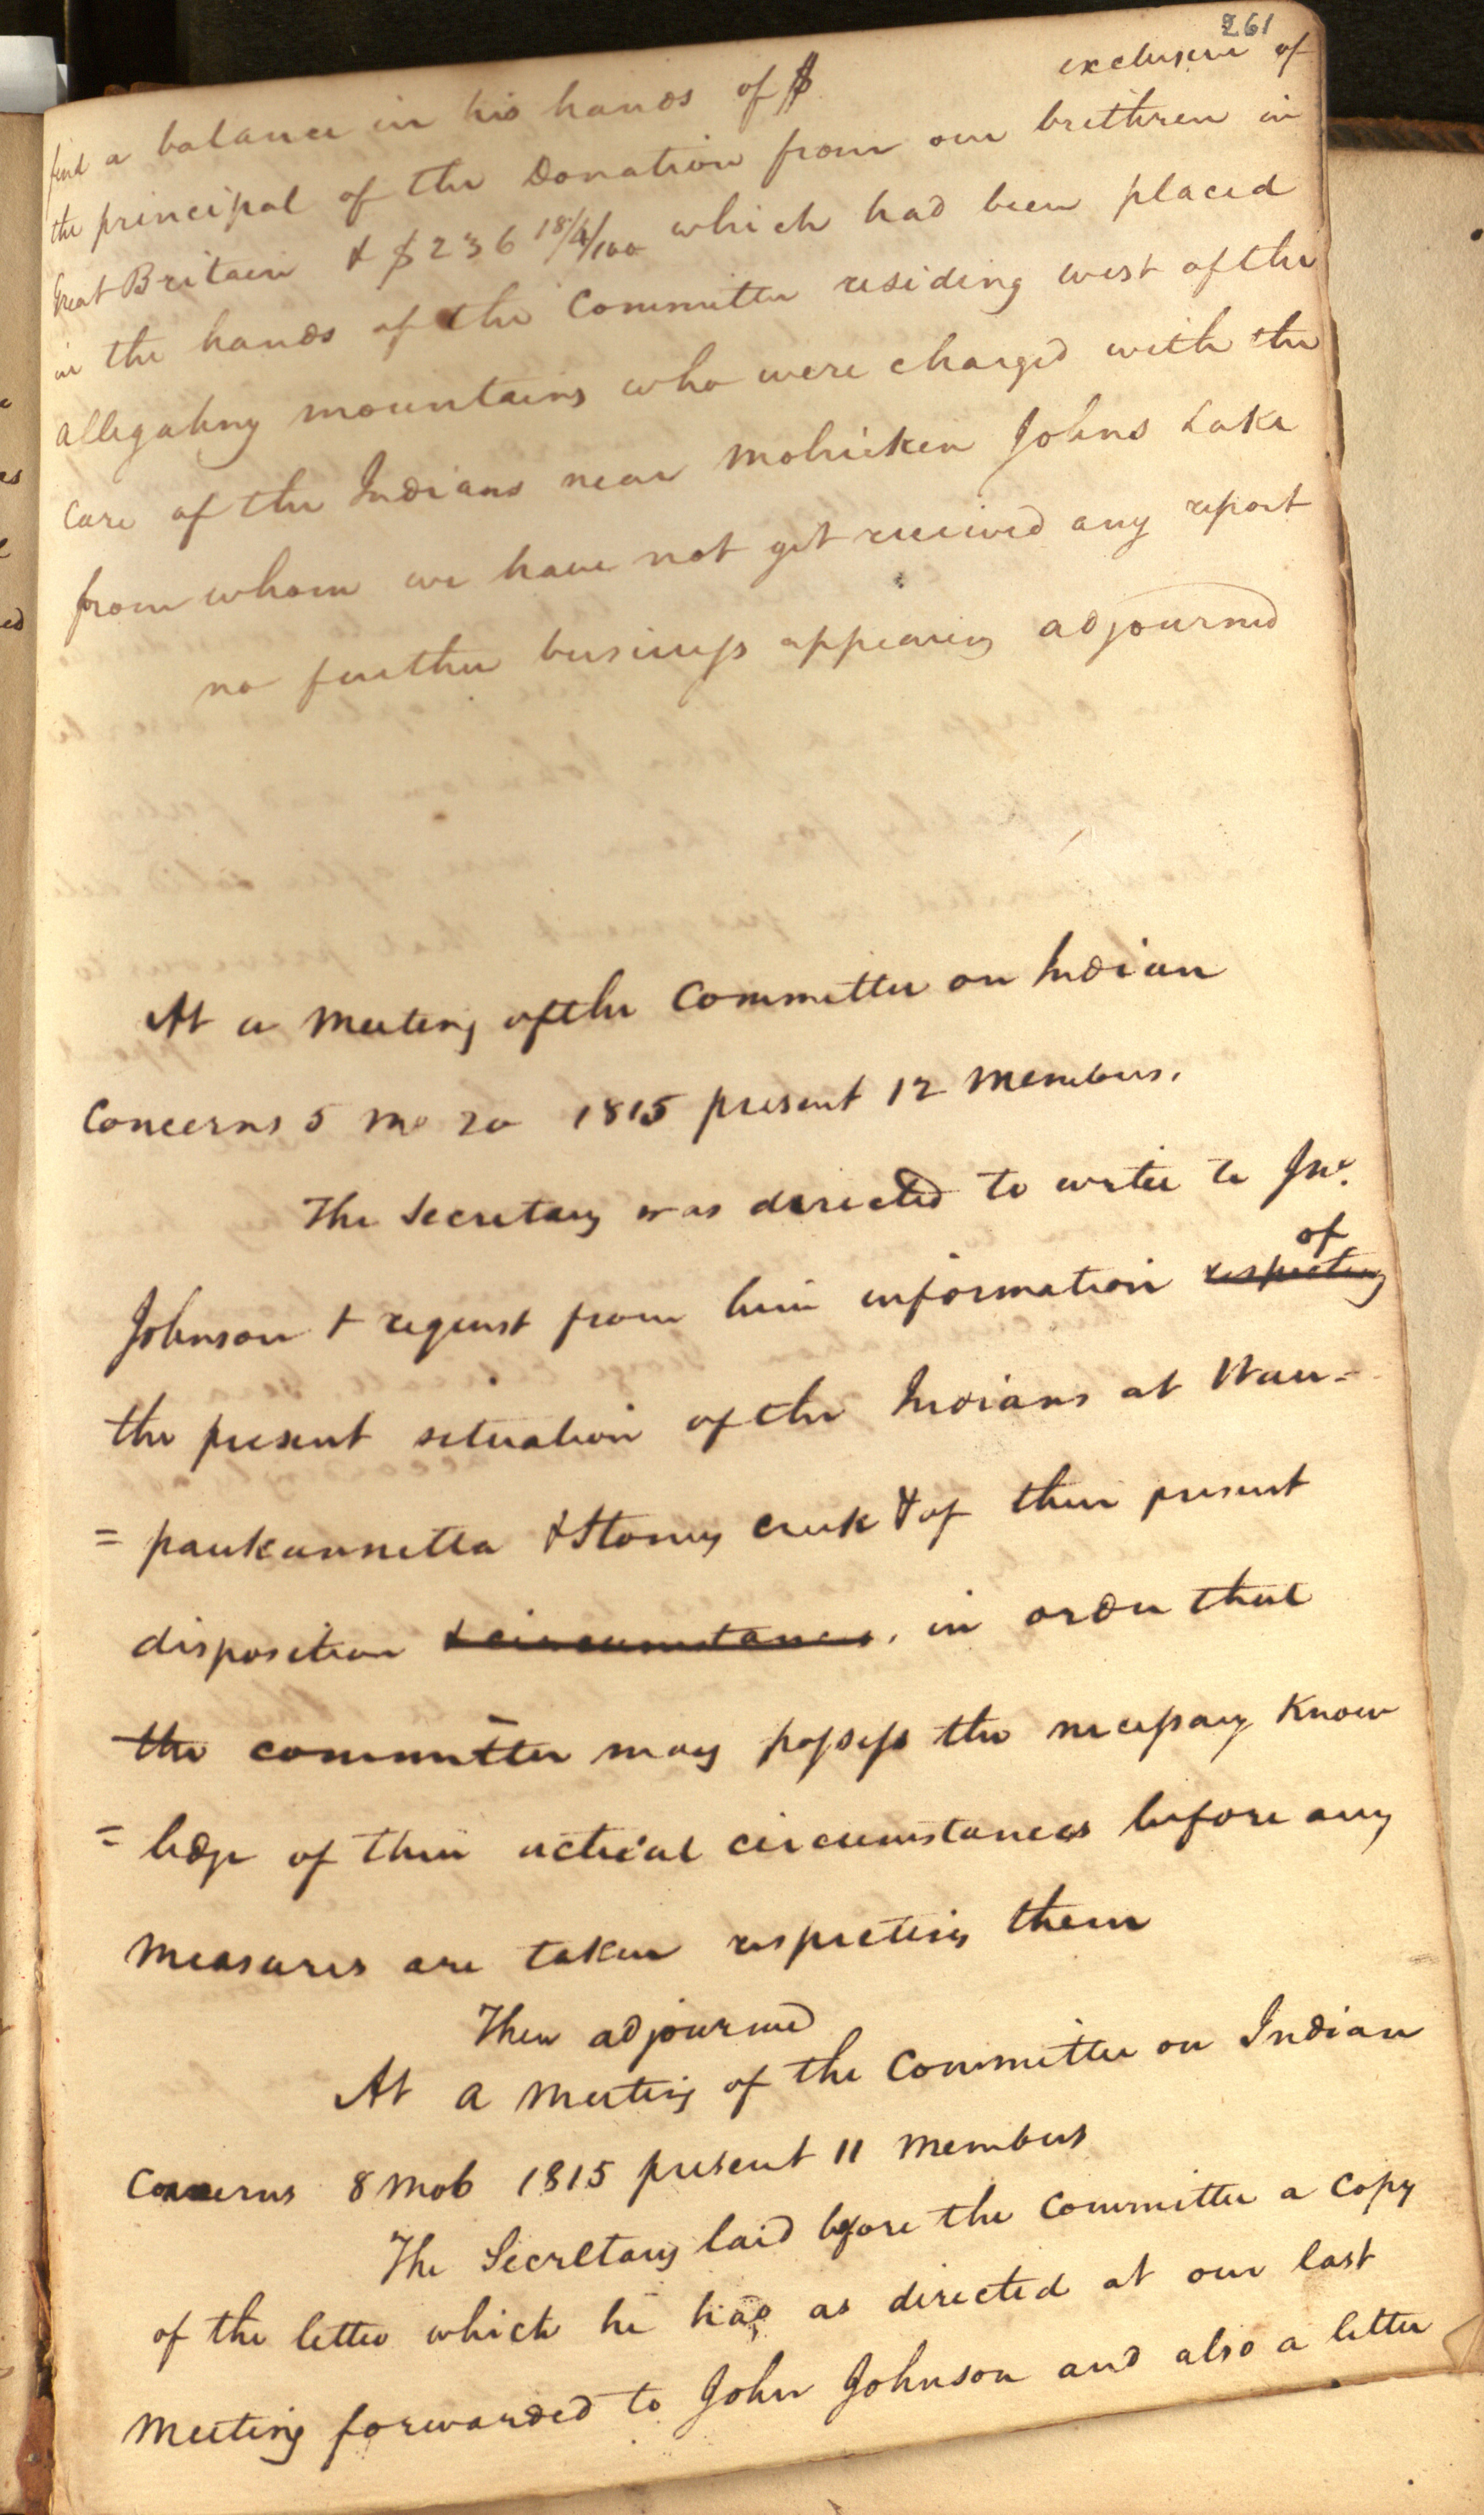 261
find a balance in his hands of $ exclusive of
the principal of the Donation from our brethren in
Great Britain & $236 18/4/100 which had been placed
in the hands of the Committee residing west of the
allegahny mountains who were charged with the
Care of the Indians near Mohicken Johns Lake
from whom we have not yet received any report
no further business appearing adjourned
At a Meeting of the Committee on Indian
Concerns 5 Mo 20 1815 present 12 Members.
The Secretary was directed to write to Jno.
Johnson & request from him information respecting of
the present situation of the Indians at Wau=
=paukannetta & Stony Creek & of their present
disposition & circumstances. in order that
the committee may possess the necessary Know
=ledge of their actual circumstances before any
Measures are taken respecting them
Then adjourned
At a Meeting of the Committee on Indian
Concerns 8 Mo 6 1815 present 11 Members
The Secretary laid before the Committee a Copy
of the letter which he had as directed at our last
Meeting forwarded to John Johnson and also a letter